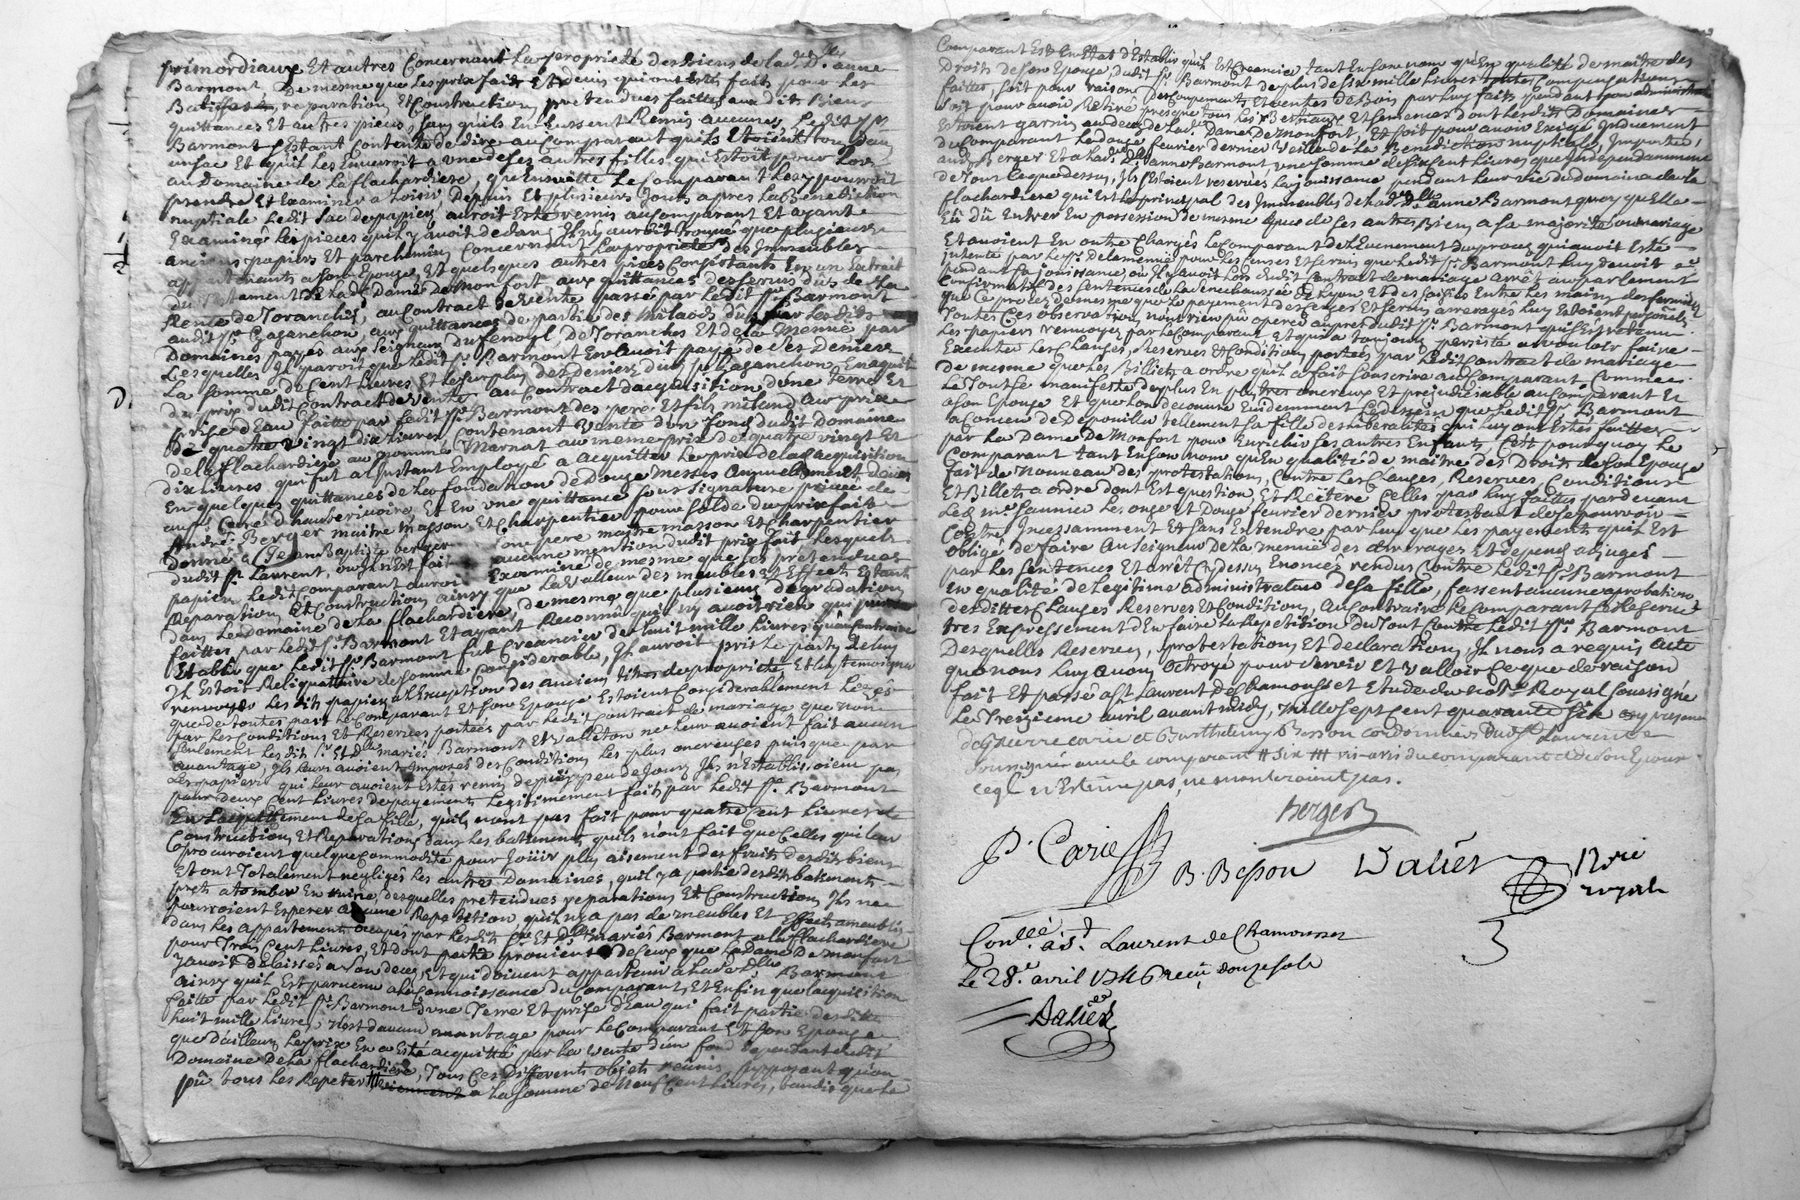 primordiaux Et autres Concernant La propriete Des Biens de lad. Dlle anne
Barmont De mesme que Les prix faits Et Devis qui ont Estés faits pour Les
Batisses, reparations Et Constructions pretendues faittes aux dits Biens
quittances Et autres pieces, sans quils En Eussent Remis aucunes, Ledit Sr
Barmont s'Estant Contenté de dire au Comparant quils Etoient tous Dans
un sac Et quil Les Envoiroit a une de ses autres filles qui Estoit pour Lors
au Domaine de La flachardiere, que Ensuitte Le Comparant Les y pourroit
prendre Et Examiner a Loisir, Depuis Et plusieurs Jours apres La Benediction
nuptiale Ledit sac de papiers auroit Esté remis au Comparant Et ayant
Examiné Les pieces quil y avoit dedans Il n'y auroit trouvé que plusieurs
anciens papiers Et parchemins Concernant La propriete Des Immeubles
appartenants a son Epouse Et quelques autres pieces Consistants En un Extrait
du testament De Lad. Dame De Monfort, aux quittances des servis dus de La
Rente De Toranches, au Contract de vente passé par Ledit Sr Barmont
audit Sr Chazanchon, aux quittances de partie des Milaods dus par Lesdits
Domaines passés aux Seigneurs Du fenoyl De Toranches Et de La Menue par
Lesquelles Il paroit que Ledit Sr Barmont En avoit payé de ses Deniers
La somme de Cent Livres Et Le surplus des deniers du Sr Chazanchon En acquit
du prix dudit Contract de vente, au Contract d'acquisition d'une Terre Et
prise d'Eau faitte par Ledit Sr Barmont des pere Et fils Milaud au prix
De quatre vingt dix Livres, Contenant vente d'un fond dudit Domaine
de La flachardiere au nommé Marnat au meme prix de quatre vingt Et
dix Livres qui fut a L'instant Employé a acquitter Le prix de Lad. acquisition
En quelques quittances de La fondation de Douze Messes annuellement dues
au Sr Curé d'hauterivoire, Et En une quittance sous signature privée de
André Berger maitre masson Et Charpentier pour solde du prix fait
Donné a Jean Baptiste berger son pere maitre masson Et Charpentier
dudit St Laurent, ou Il n'Est fait aucune mention dudit prix fait Lesquels
papiers Ledit Comparant auroit Examiné de mesme que Les pretendues
Reparations Et Constructions ainsy que La valleur des meubles Et Effects Estants
dans Le domaine de La flachardiere, de mesme que plusieurs degradations
faittes par Ledit Sr Barmont Et ayant Reconnu quil n'y avoit rien qui put
Etablir que Ledit Sr Barmont fut Creancier de huit mille Livres, quau Contraire
Il Estoit Reliquataire de somme Considerable, Il auroit pris Le party De Luy
renvoyer Les dits papiers a L'Exception des anciens titres de propriete Et Luy temoigner
que de toutes parts Le Comparant Et son Epouse Estoient Considerablement Lezés
par Les Conditions Et Reserves portées par Ledit Contract de mariage que non
seulement Lesdits Sr Et Dlle mariés Barmont Et Valleton ne Leur avoient fait aucun
avantage, Ils Leurs avoient Imposés des Conditions Les plus onereuses puisque par
Les papiers qui Leur avoient Estés remis depuis peu de Jours Ils n'Etablissoient pas
pour deux Cent Livres de payements Legitimement faits par Ledit Sr Barmont
En L'acquittement de sa fille, quils n'ont pas fait pour quatre Cent Livres de
Constructions Et Reparations dans Les batiments, quils n'ont fait que Celles qui Leur
procuroient quelque Commodité pour Joüir plus aisement des fruits desdits biens
Et ont Totalement negligés Les autres Domaines, quil y a partie desdits batiments
prets a tomber En ruine, desquelles pretendues reparations Et Constructions Ils ne
pourroient Esperer aucune Repetition quil n'y a pas de meubles Et Effects ameublis
dans Les appartements occupés par Lesdits Sr Et Dlle mariés Barmont a La flachardiere
pour Trois Cent Livres, Et dont partie provient de Ceux que La Dame De Monfort
y avoit delaissés a son deces, Et qui doivent appartenir a Lad. Dlle Barmont
ainsy quil Est parvenu a La Connoissance du Comparant, Et Enfin que L'acquisition
faitte par Ledit Sr Barmont d'une Terre Et prise d'Eau qui fait partie desdittes
huit mille Livres n'Est d'aucun avantage pour Le Comparant Et son Epouse
que d'ailleurs Le prix En a Eté acquitté par La vente d'un fond dependant dudit
Domaine De La flachardiere, Tous Ces Differents objets reunis, supposant qu'on
pû tous Les Repeter a La somme de Neuf Cent Livres, tandis que Le
Comparant Est En Etat d'Etablir quil Est Creancier, tant En son nom qu'En qualité de maitre des
Droits de son Epouse, dudit Sr Barmont de plus de six mille Livres Compensations
faittes, soit pour raison des Coupements Et ventes de Bois par Luy faits pendant son administration
soit pour avoir Retiré presque tous Les Bestiaux Et semences dont Lesdits Domaines
Estoient garnis au deces de Lad. Dame De Monfort, Et soit pour avoir Exigé Induement
du Comparant Le douze fevrier dernier veille de La Benediction nuptiale, Importée,
aud. Berger Et a Lad. Dlle anne Barmont une somme de six Cent Livres que Independamment
de Tout Ce que dessus, Ils s'Estoient reservés La jouissance pendant Leur vie du Domaine de La
flachardiere qui Est Le principal des Immeubles de Lad. Dlle anne Barmont quoy qu'Elle
Eut dû Entrer En possession de mesme que de ses autres Biens a sa majorité ou mariage
Et avoient En outre Chargés Le Comparant de L'Evenement du proces qui avoit Esté
Intenté par Le Sr de La Menue pour Les Censes Et servis que Ledit Sr Barmont Luy devoit
pendant sa jouissance, ou Il y avoit Lors dudit Contract de mariage arrêt au parlement
Confirmatif des sentences de La senechaussée De Lyon Et des saisies Entre Les mains des fermiers
que Ce proces de mesme que Le payement des Censes Et servis arrerages Luy Estoient personnels
Toutes Ces observations n'ont rien pû operer aupres dudit Sr Barmont qui s'Est retenu
Les papiers renvoyez par Le Comparant Et qui a toujours persisté a vouloir faire
Executer Les Clauses, Reserves Et Conditions portées par Ledit Contract de mariage
De mesme que Les Billets a ordre quil a fait souscrire au Comparant Comme
Le Tout se manifeste de plus En plus tres onereux Et prejudiciable au Comparant Et
a son Epouse Et que Lon decouvre Evidemment Le dessein que Ledit Sr Barmont
a Conçu de Depouiller tellement sa fille des liberalités qui Luy ont Estés faittes
par La Dame De Monfort pour Enrichir Les autres Enfants, C'Est pourquoy Le
Comparant tant En son nom qu'En qualité de maitre des Droits de son Epouse
fait de Nouveau des protestations Contre Les Clauses, Reserves, Conditions
Et Billets a ordre dont Est question, Et Reïtere Celles par Luy faittes pardevant
Led. Me Saunier Les onze Et Douze fevrier dernier protestant de se pourvoir
Contre Incessamment Et sans Entendre par Luy que Les payements quil Est
obligé de faire au Seigneur De La Menue des arrerages Et depends adjugés
par Les sentences Et arrêt Cy dessus Enoncés rendus Contre Ledit Sr Barmont
En qualité de Legitime administrateur de sa fille, fassent aucune aprobation
desdittes Clauses Reserves Et Conditions, au Contraire Le Comparant se Reserve
tres Expressement D'En faire La Repetition Du Tout Contre Ledit Sr Barmont
Desquelles Reserves, protestations Et declarations, Il nous a requis acte
que nous Luy avons octroyé pour servir Et valloir Ce que de raison
fait Et passé a St Laurent De Chamousset Etude du Notre Royal soussigné
Le Treizieme avril avant midy, mille sept Cent quarante six En presence
de Sr Pierre Carie et Barthelemy Besson Cordonniers Dud. St Laurent
soussignés avec le comparant # six ### vis-avis du comparant et de son Epouse
ceql n'Estime pas, ne montroient pas.
Berger
P. Carie B. Besson Daliés Nore
royal
Conllé a St. Laurent de Chamousset
Le 28e avril 1746 reçu douze sols
Daliés